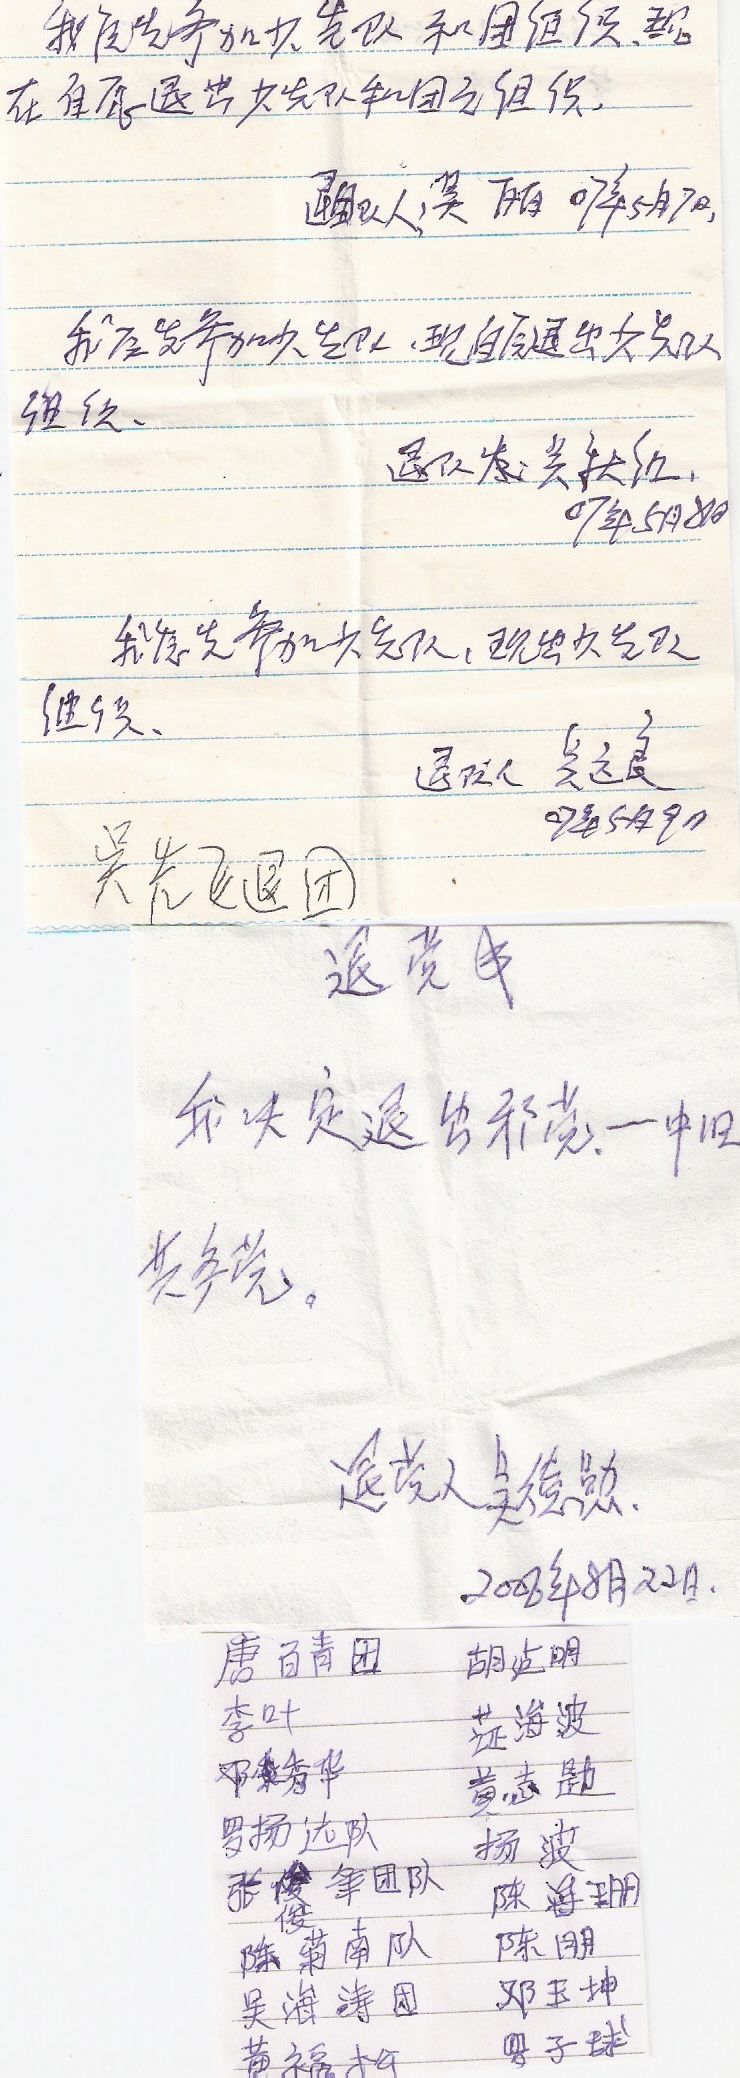 我原先参加少先队和团组织、现
在自愿退出少先队和团之组织.
退团队人: 吴 07年5月7日.
我原先参加少先队.现自愿退出少先队
组织、
退队者: 吴秋红.
07年5月8日
我原先参加少先队、现出少先队
组织、
退队人 吴远良
07年5月9日
吴先飞退团
退党书
我决定退出邪党、一中国
共产党。
退党人吴德勋.
2008年8月22日.
唐百青团 胡志明
李叶 海波
邓秀华 黄志勋
罗扬达队 扬波
张俊军团队 陈
俊
陈菊南队 陈明
吴海涛团 邓玉坤
黄福松 罗子球